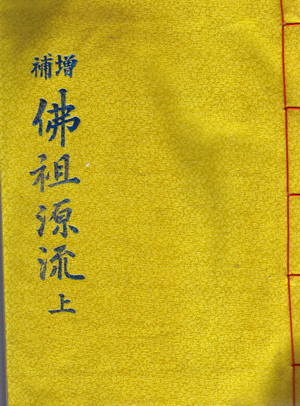 增補
佛祖源流
上